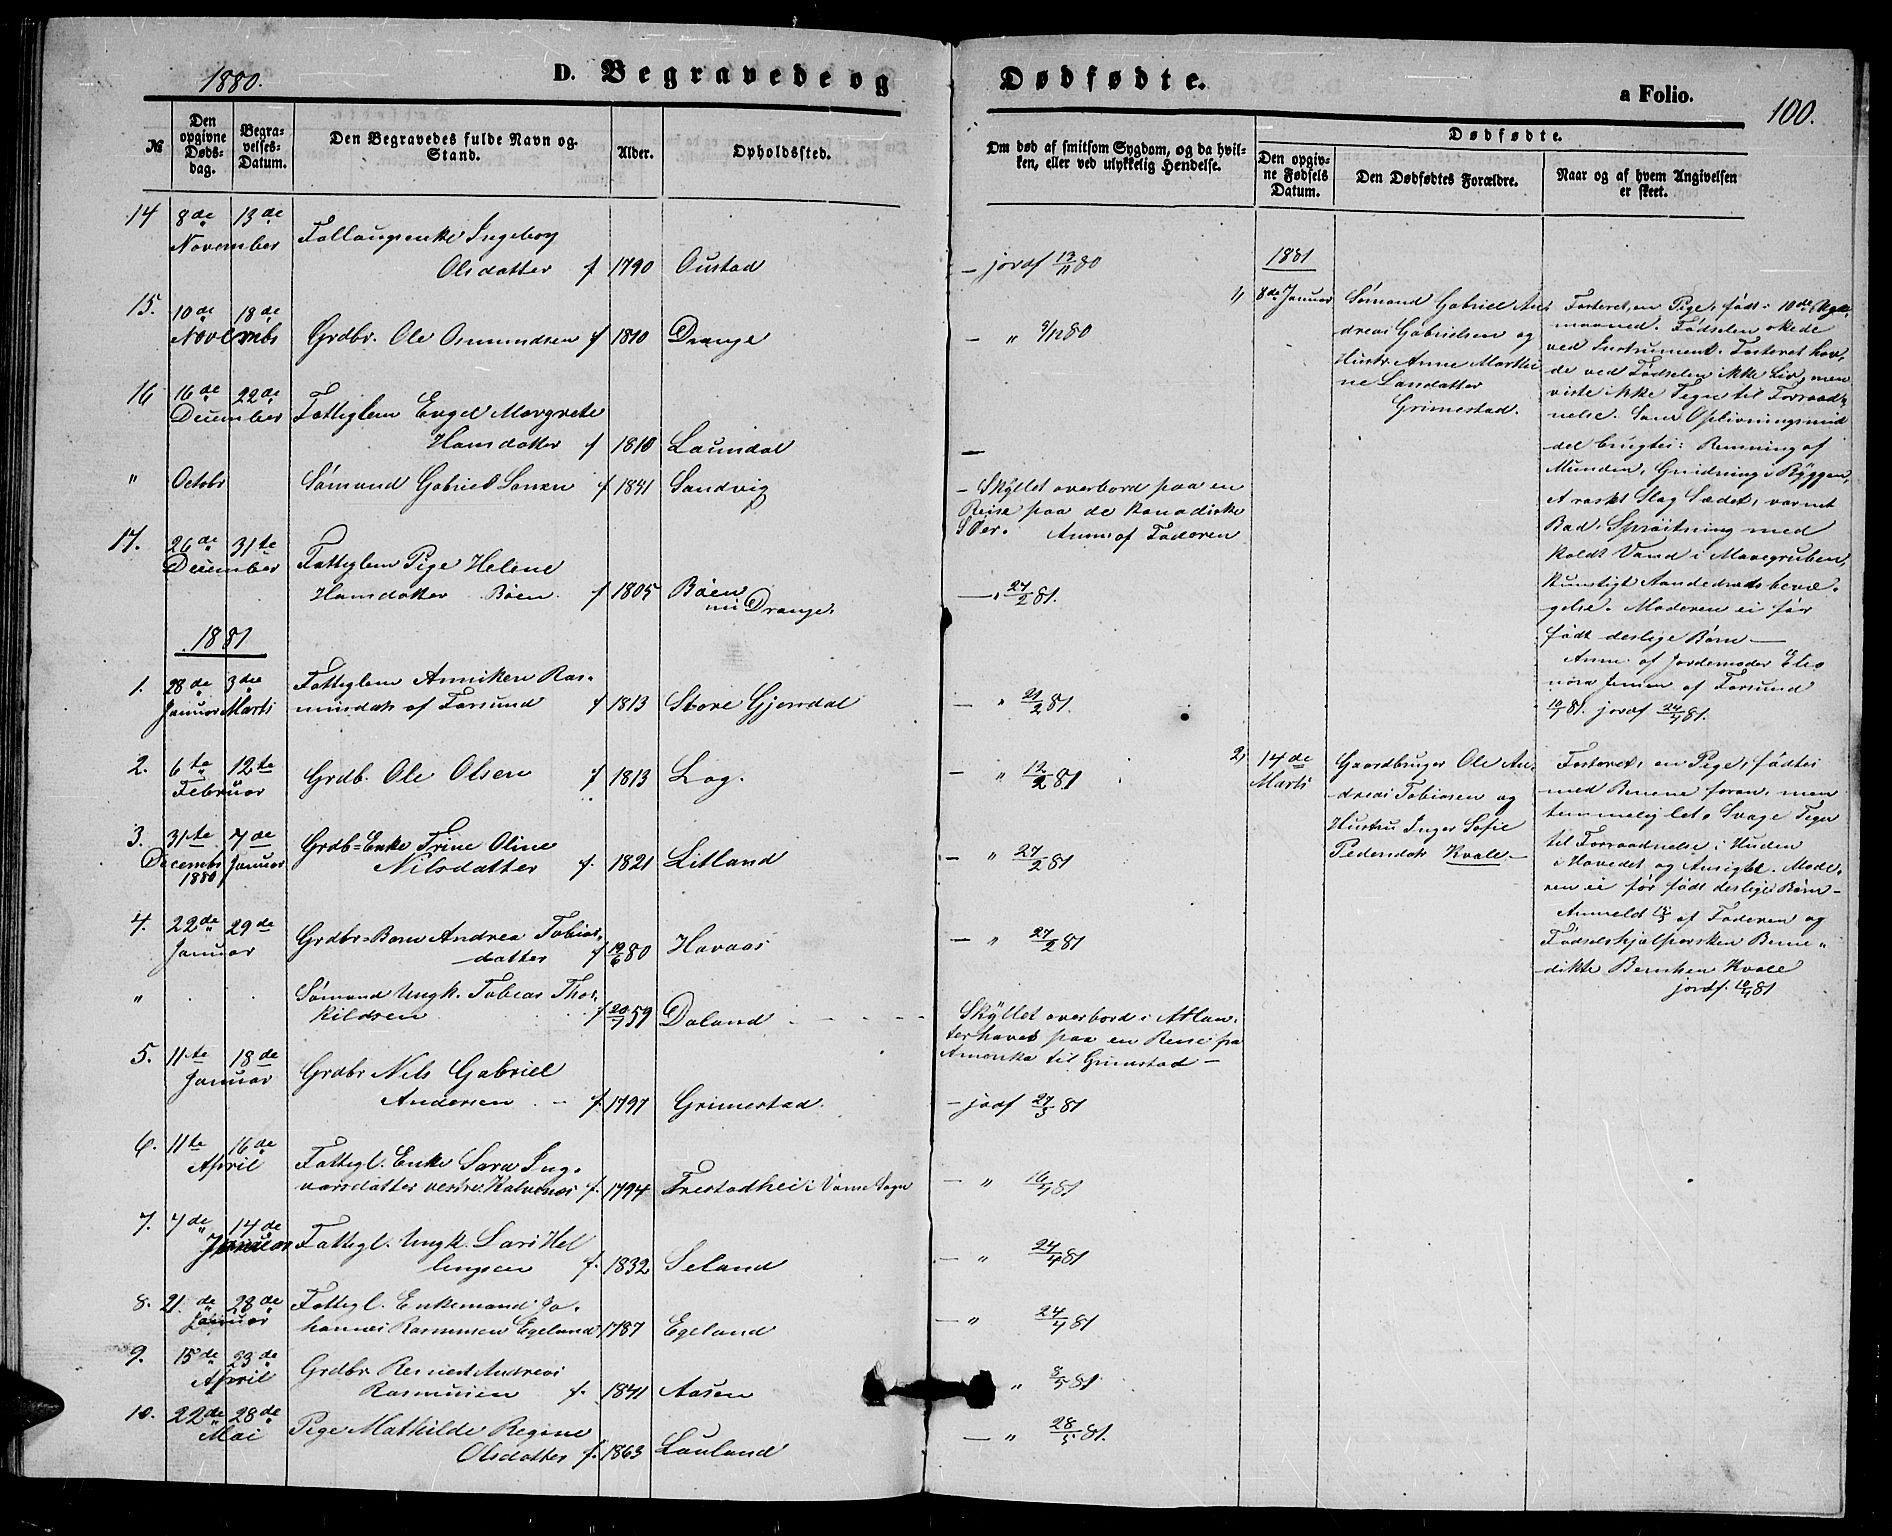 1880.
D. Begravede og Dødfødte.
a Folio.
100.
№
Den opgivne Døds-dag.
Begra-velses-Datum.
Den Begravedes fulde Navn og Stand.
Alder.
Opholdssted.
Om død af smitsom Sygdom, og da hvil-ken, eller ved ulykkelig Hendelse.
Dødfødte.
Den opgiv-ne Fødsels Datum.
Den Dødfødtes Forældre.
Naar og af hvem Angivelsen er skeet.
14 8de 13de
November Ingeborg
Olsdatter f 1790 Oustad - jordf 13/11 80
15. 10de 18de
Novembr Grdbr. Ole Osmundsen f 1810 Drange - " 3/12 80
16 16de 22de
December Fattiglem Engel Margrete
Hansdatter f 1810 Laundal -
" Octobr Sømand Gabriel Larsen f 1841 Sandvig - Skyllet overbord paa en
Reise paa de kanadiske
Søer. Anm. af Faderen
17. 26de 31te
December Fattiglem Pige Helene
Hansdatter Bøen. f 1805 Bøen
Drange. - " 27/2 81.
1881
1. 28de 3die
Januar Marts
Fattiglem Anniken Ras-
musdatr af Farsund f 1813 Store Gjerdal - " 21/2 81.
2. 6te 12te
Februar Grdb. Ole Olsen f 1813 Log. - " 12/2 81
3. 31te 7de
Decembr 1880 Januar
Grdb-Enke Trine Oline
Nilsdatter f. 1821 Litland - " 27/2 81
4. 22de 29de
Januar Grdbr-Barn Andrea Tobias-
datter f 19/6 80 Havaas - " 27/2 81
" Sømand Ungk. Tobias Thor-
kildsen f 20/7 59 Daland - Skyllet overbord i Atlan-
terhavet paa en Reise fra
Amerika til Grimstad -
5. 11te 18de
Januar Grdbr Nils Gabriel
Andersen - f. 1797 Grimestad. - jordf 27/3 81
6. 11te 16de
April Fattigl. Enke Sara Ing-
varsdatter vestre Kalvenes f. 1794 Frestadhei i Vanse Sogn - " 16/4 81
7. 4de 14de
Januar Fattigl. Ungk. Lars Hel
lingsen f. 1832 Seland - " 24/4 81
8. 21de 28de
Januar Fattigl. Enkemand Jo-
hannes Rasmusen Egeland 1787 Egeland - " 24/4 81
9. 15de 23de
April Grdbr. Andreas
Rasmusen f. 1841 Aasen " 8/5 81
10. 22de 28de
Mai Pige Mathilde Regine
Olsdatter f. 1863 Lauland - " 28/5 81.
1881
1, 8de Januar
Sømand Gabriel An-
dreas Gabrielsen og
Hustr. Anne Marthi
ne Larsdatter
Grimestad.
Fosteret, en Pige, født i 10de Svgs-
maaned. Fødselen skede
ved Instrument. Fosteret hav-
de ved Fødselen ikke Liv, men
viste ikke Tegn til Forraad-
nelse. Som Oplivningsmid
del brugtes: Rensning af
Munden, Gnidning i Ryggen,
raske Slag Sædet, varmt
Bad, Sprøitning med
koldt Vand i Mavegruben,
kunstigt Aandedrætsbevæ-
gelse. Moderen ei før
født deslige Børn -
Anm. af Jordemoder Eleo
nora Jensen af Farsund
10/1 81. jordf 24/4 81.
2, 14de
Marts
Gaardbruger Ole An-
dreas Tobiasen og
Hustru Inger Sofie
Pedersdatr Kvale -
Fosteret, en Pige, fødtes
med Benene foran, men
temmelig let. Svage Tegn
til Forraadnelse i Huden
i Hovedet og Ansigtet. Mode-
ren ei før født deslige Børn -
Anmeldt af Faderen og
Fødselshjelpersken Bene-
dikte Berntsen Kvale
jordf. 10/4 81